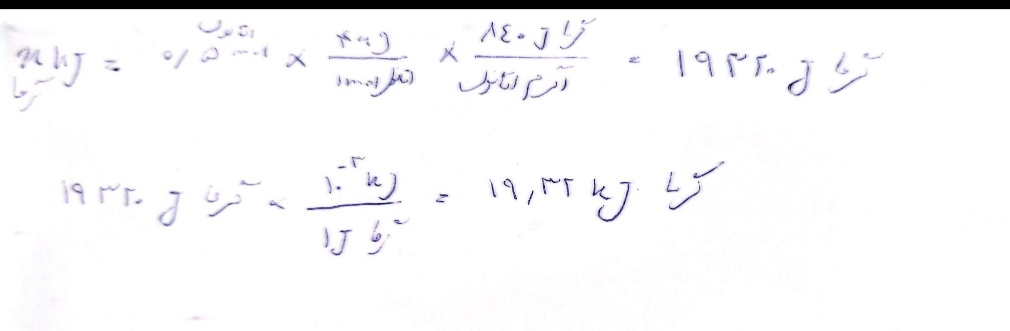 x kJ گرما = ۰/۵ mol اتانول × ۴۶ g / ۱ mol اتانول × ۸۴۰ J گرما / ۱ گرم اتانول = ۱۹۳۲۰ J گرما
۱۹۳۲۰ J گرما × ۱۰⁻³ kJ / ۱ J گرما = ۱۹,۳۲ kJ گرما